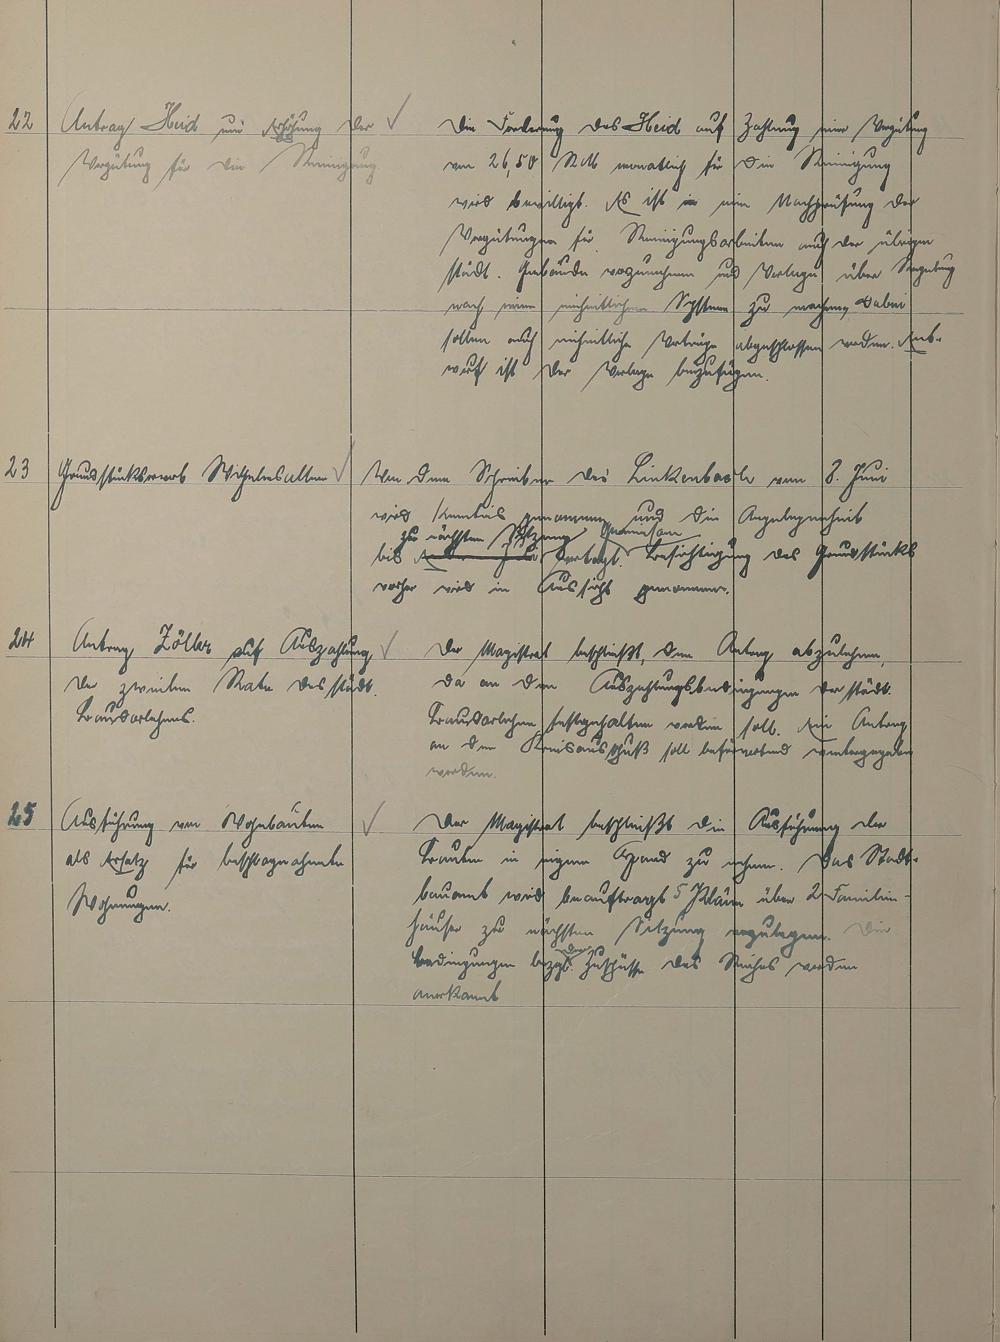 22 Antrag Heid um Erhöhung der
Vergütung für die Reinigung
Die Forderung des Heid auf Zahlung einer Vergütung
von 26,50 RM monatlich für die Reinigung
wird bewilligt. Es ist eine Nachprüfung der
Vergütungen für Reinigungsarbeiten auch der übrigen
städt. Gebäude vorzunehmen und Vorlage über Regelung
nach einem einheitlichen System zu machen, dabei
sollen auch einheitliche Verträge abgeschlossen werden. Ent-
wurf ist der Vorlage beizufügen.
23 Grundstückserwerb Wilhelmsallee
Von dem Schreiben des Linkenbach vom 8. Juni
wird Kenntnis genommen und die Angelegenheit
zur nächsten Sitzung Gemeinsame
bis vertagt. Besichtigung des Grundstücks
vorher wird in Aussicht genommen.
24 Antrag Zöller auf Auszahlung
der zweiten Rate des städt.
Baudarlehens.
Der Magistrat beschließt, den Antrag abzulehnen,
da an den Auszahlungsbedingungen der städt.
Baudarlehen festgehalten werden soll. Ein Antrag
an den Kreisausschuß soll befürwortend weitergegeben
werden.
25 Ausführung von Wohnbauten
als Ersatz für beschlagnahmte
Wohnungen.
Der Magistrat beschließt die Ausführung der
Bauten in eigene Hand zu nehmen. Das Stadt-
bauamt wird beauftragt 5 Pläne über 2 Familien-
häuser zur nächsten Sitzung vorzulegen. Die
Bedingungen bezgl. der Zuschüsse des Reiches werden
anerkannt